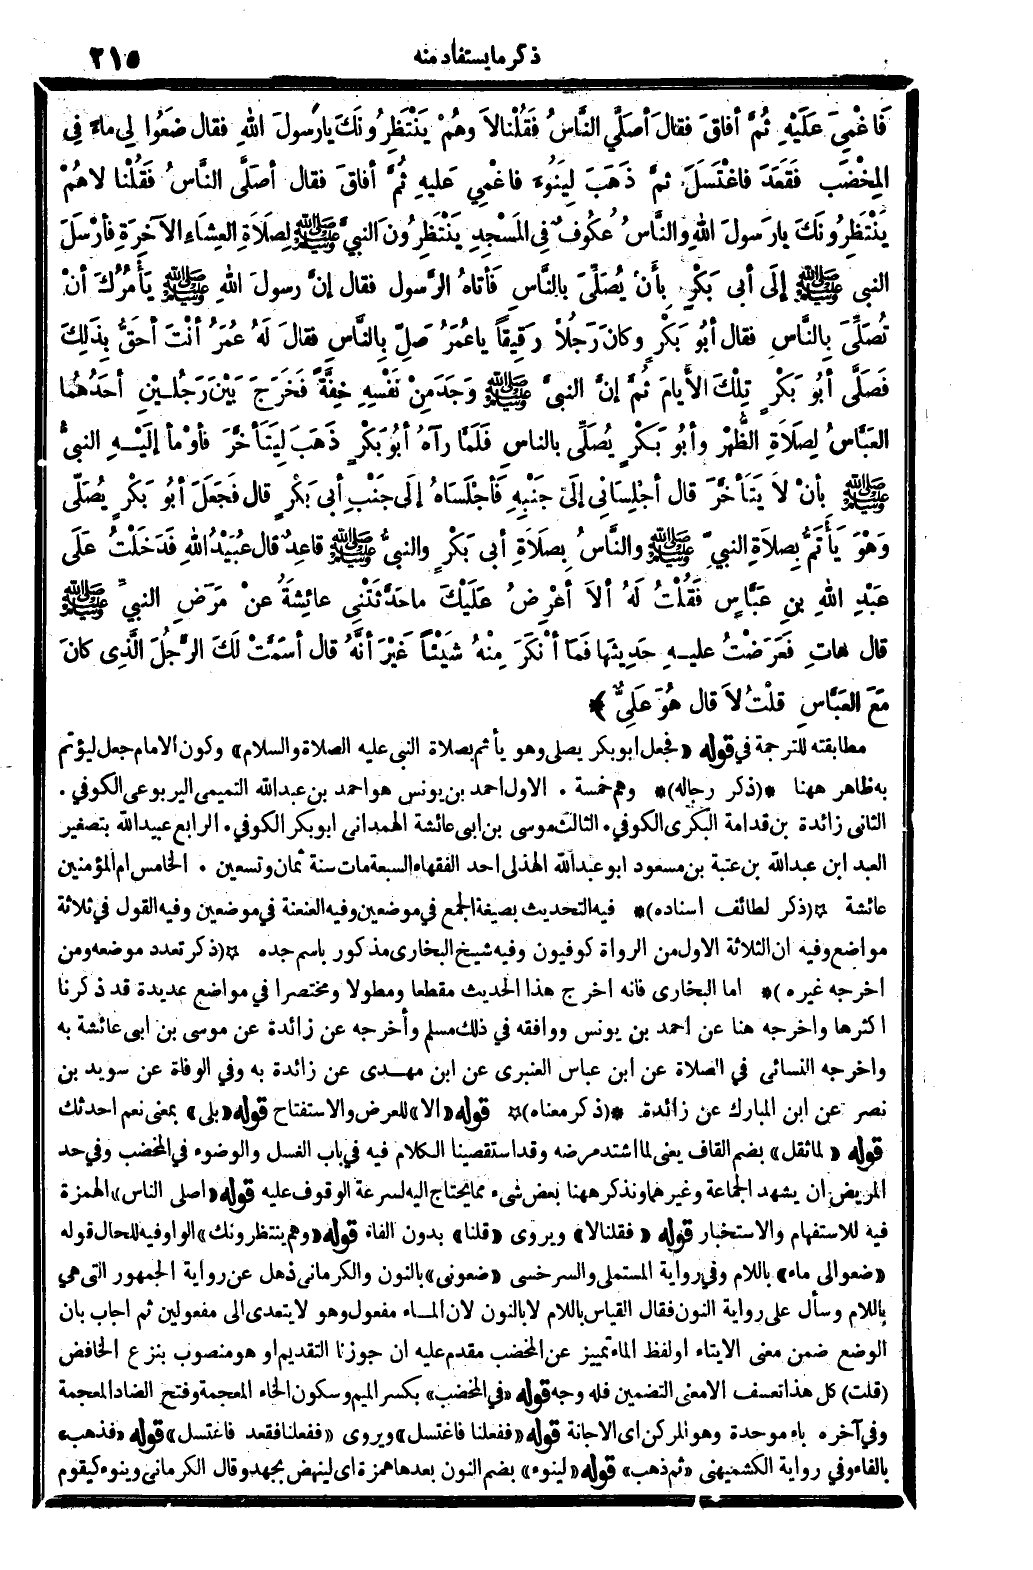 ذكر مايستفاد منه ٢١٥
فَاغْمِىَ عَلَيْهِ ثُمَّ أفاقَ فقالَ أصَلَّي النَّاسُ فَقُلْنالاَ وهُمْ يَنْتَظِرُونَكَ يارَسولَ اللهِ فقال ضَعُوا لِي ماءً فِي
المِخْضَبِ فَقَعَدَ فاغْتَسَلَ ثمَّ ذَهَبَ لِيَنُوءَ فاغْمِي عَليهِ ثُمَّ أفاقَ فقال أصَلَّى النَّاسُ فَقُلْنا لاهُمْ
يَنْتَظِرُونَكَ يارَسولَ اللهِ والنَّاسُ عُكُوفٌ فِى المَسْجِدِ يَنْتَظِرُونَ النبيَّ ﷺ لِصَلَاةِ العِشَاءِ الآخِرَةِ فأرْسَلَ
النبي ﷺ إلَى أبى بَكْرٍ بِأَنْ يُصَلِّىَ بالنَّاسِ فَأتاهُ الرَّسول فقال إنَّ رسولَ اللهِ ﷺ يَأمُرُكَ أنْ
تُصَلِّىَ بِالنَّاسِ فقال أبُو بَكْرٍ وكانَ رَجُلاً رَقِيقاً ياعُمَرُ صَلِّ بِالنَّاسِ فقالَ لَهُ عُمَرُ أنْتَ أحَقُّ بِذَلِكَ
فَصَلَّى أبُو بَكْرٍ تِلْكَ الأيامَ ثُمَّ إنَّ النبىَّ ﷺ وَجَدَ مِنْ نَفْسِهِ خِفَّةً فَخَرَجَ بَيْنَ رَجُلَيْنِ أحَدُهُما
العَبَّاسُ لِصَلَاةِ الظُّهْرِ وأبُو بَكْرٍ يُصَلِّى بالناسِ فَلَمَّا رآهُ أبُوبَكْرٍ ذَهَبَ لِيَتَأخَّرَ فأوْمأ إلَيْهِ النبىُّ
ﷺ بأنْ لاَ يَتَأخَّرَ قال أجْلِسانِى إلَى جَنْبِهِ فَأجْلَسَاهُ إلَى جَنْبِ أبى بَكْرٍ قال فَجَعَلَ أبُو بَكْرٍ يُصَلّى
وَهْوَ يَأتَمُّ بِصلَاةِ النبيِّ ﷺ والنَّاسُ بِصَلَاةِ أبى بَكْرٍ والنبىُّ ﷺ قاعِدٌ قال عُبَيْدُ اللهِ فَدَخَلْتُ عَلَى
عَبْدِ اللهِ بنِ عَبَّاسٍ فَقُلْتُ لَهُ ألاَ أعْرِضُ عَلَيْكَ ماحَدَّثَتْنِى عائِشَةُ عنْ مَرَضِ النبيِّ ﷺ
قال هاتِ فَعَرَضْتُ عليهِ حَدِيثَها فَمَا أنْكَرَ مِنْهُ شَيْئاً غَيْرَ أنَّهُ قال أسَمَّتْ لَكَ الرَّجُلَ الَّذِى كانَ
مَعَ العَبَّاسِ قلْتُ لاَ قال هُوَ عَلِيٌّ ﴾
مطابقته للترجمة في قوله «فجعل ابوبكر يصلى وهو يأتم بصلاة النبي عليه الصلاة والسلام» وكون الامام جعل ليؤتم
به ظاهر ههنا *(ذكر رجاله)* وهم خمسة . الاول احمد بن يونس هو احمد بن عبدالله التميمى اليربوعى الكوفي .
الثانى زائدة بن قدامة البكرى الكوفي. الثالث موسى بن ابى عائشة الهمدانى ابوبكر الكوفي. الرابع عبيدالله بتصغير
العبد ابن عبدالله بن عتبة بن مسعود ابو عبدالله الهذلى احد الفقهاء السبعة مات سنة ثمان وتسعين . الخامس ام المؤمنين
عائشة *(ذكر لطائف اسناده)* فيه التحديث بصيغة الجمع في موضعين وفيه العنعنة في موضعين وفيه القول في ثلاثة
مواضع وفيه ان الثلاثة الاول من الرواة كوفيون وفيه شيخ البخارى مذكور باسم جده *(ذكر تعدد موضعه ومن
اخرجه غيره )* اما البخارى فانه اخرج هذا الحديث مقطعا ومطولا ومختصرا في مواضع عديدة قد ذكرنا
اكثرها واخرجه هنا عن احمد بن يونس ووافقه في ذلك مسلم وأخرجه عن زائدة عن موسى بن ابى عائشة به
واخرجه النسائى في الصلاة عن ابن عباس العنبرى عن ابن مهدى عن زائدة به وفي الوفاة عن سويد بن
نصر عن ابن المبارك عن زائدة. *(ذكر معناه)* قوله «الا» للعرض والاستفتاح قوله «بلى» بمعنى نعم احدثك
قوله « لما ثقل» بضم القاف يعنى لما اشتد مرضه وقد استقصينا الكلام فيه في باب الغسل والوضوء في المخضب وفي حد
المريض ان يشهد الجماعة وغيرهما ونذكر ههنا بعض شىء مما يحتاج اليه لسرعة الوقوف عليه قوله «اصلى الناس» الهمزة
فيه للاستفهام والاستخبار قوله « فقلنا لا» ويروى «قلنا» بدون الفاء قوله «وهم ينتظرونك» الواو فيه للحال قوله
«ضعوالى ماء» باللام وفي رواية المستملى والسرخسى «ضعونى» بالنون والكرمانى ذهل عن رواية الجمهور التى هي
باللام وسأل على رواية النون فقال القياس باللام لا بالنون لان الماء مفعول وهو لا يتعدى الى مفعولين ثم اجاب بان
الوضع ضمن معنى الايتاء او لفظ الماء تمييز عن المخضب مقدم عليه ان جوزنا التقديم او هو منصوب بنزع الخافض
(قلت) كل هذا تعسف الا معنى التضمين فله وجه قوله «في المخضب» بكسر الميم وسكون الخاء المعجمة وفتح الضاد المعجمة
وفي آخره باء موحدة وهو المركن اى الاجانة قوله «ففعلنا فاغتسل» ويروى «ففعلنا فقعد فاغتسل» قوله «فذهب»
بالفاء وفي رواية الكشميهنى «ثم ذهب» قوله «لينوء» بضم النون بعدها همزة اى لينهض بجهد وقال الكرمانى وينوء كيقوم